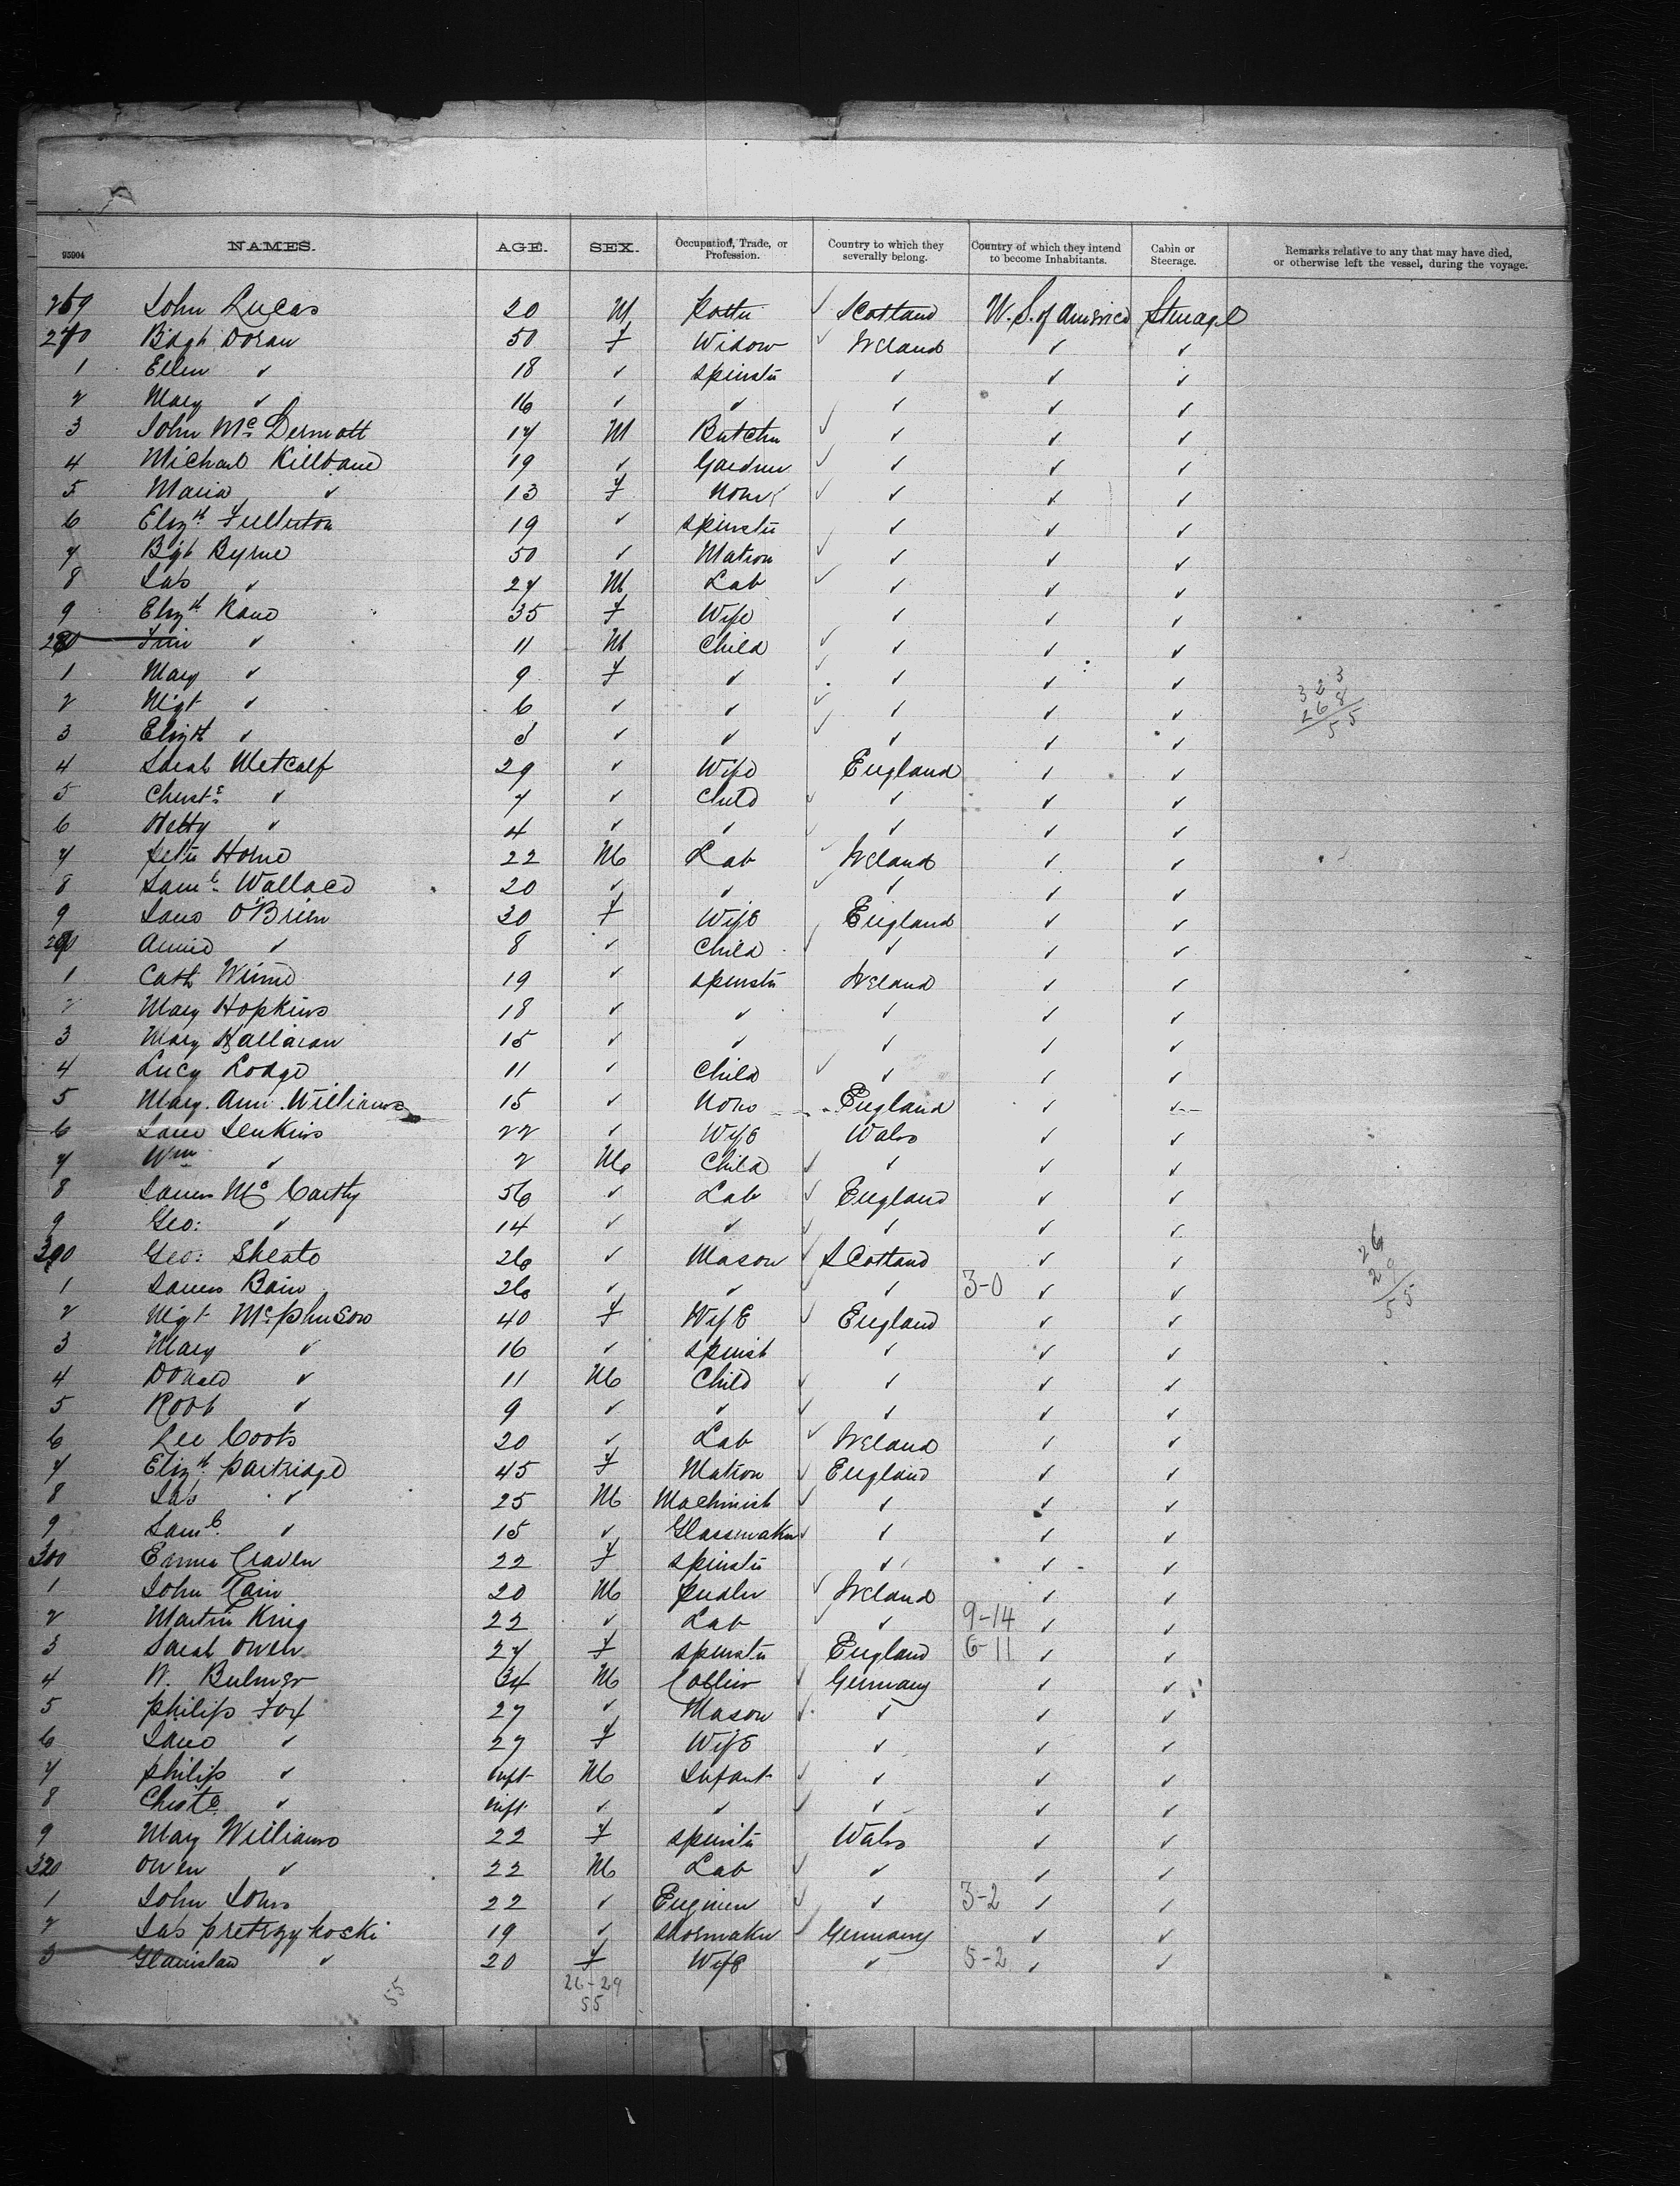 95904 NAMES. AGE. SEX. Occupation, Trade, or Profession. Country to which they severally belong. Country of which they intend to become Inhabitants. Cabin or Steerage. Remarks relative to any that may have died, or otherwise left the vessel, during the voyage.
269 John Lucas 20 M ✓ Scotland U.S. of America Steerage
270 Bdgt Doran 50 F Widow ✓ Ireland ✓ ✓
1 Ellen ✓ 18 ✓ Spinster ✓ ✓ ✓
2 Mary ✓ 16 ✓ ✓ ✓ ✓ ✓
3 John McDermott 17 M Butcher ✓ ✓ ✓ ✓
4 Michael Killbane 19 ✓ Gardner ✓ ✓ ✓ ✓
5 Maria ✓ 13 F None ✓ ✓ ✓ ✓
6 Elizth Fullerton 19 ✓ Spinster ✓ ✓ ✓
7 Bgt Byrne 50 ✓ Matron ✓ ✓ ✓ ✓
8 Jas ✓ 27 M Lab ✓ ✓ ✓ ✓
9 Elizth Kane 35 F Wife ✓ ✓ ✓
280 ✓ 11 M Child ✓ ✓ ✓ ✓
1 Mary ✓ 9 F ✓ ✓ ✓ ✓ ✓
2 Mgt ✓ 6 ✓ ✓ ✓ ✓ ✓ ✓
3 Elizth ✓ ✓ ✓ ✓ ✓ ✓ ✓
323
268
55
4 Sarah Metcalf 29 ✓ Wife England ✓ ✓
5 ✓ 7 ✓ Child ✓ ✓ ✓ ✓
6 Hetty ✓ 4 ✓ ✓ ✓ ✓ ✓ ✓
7 Peter Horne 22 M Lab ✓ Ireland ✓ ✓
8 Saml Wallace 20 ✓ ✓ ✓ ✓ ✓ ✓
9 Jane O'Brien 30 F Wife England ✓ ✓
290 Annie ✓ 8 ✓ Child ✓ ✓ ✓ ✓
1 Cath 19 ✓ Spinster Ireland ✓ ✓
2 Mary Hopkins 18 ✓ ✓ ✓ ✓ ✓
3 Mary Hallaran 15 ✓ ✓ ✓ ✓ ✓
4 Lucy Lodge 11 ✓ Child ✓ ✓ ✓ ✓
5 Mary Ann Williams 15 ✓ None England ✓ ✓
6 Jane Jenkins 22 ✓ Wife Wales ✓ ✓
7 Wm ✓ 2 M Child ✓ ✓ ✓ ✓
8 James McCarthy 56 ✓ Lab ✓ England ✓ ✓
9 Geo: ✓ 14 ✓ ✓ ✓ ✓ ✓ ✓
300 Geo: 26 ✓ Mason ✓ Scotland ✓ ✓
26
29
55
1 James Bain 26 ✓ ✓ ✓ ✓ 3-0 ✓ ✓
2 Mgt McPherson 40 F Wife ✓ England ✓ ✓
3 Mary ✓ 16 ✓ Spinst ✓ ✓ ✓
4 Donald ✓ 11 M Child ✓ ✓ ✓ ✓
5 Robt ✓ 9 ✓ ✓ ✓ ✓ ✓ ✓
6 Lee Coots 20 ✓ Lab ✓ Ireland ✓ ✓
7 Elizth Partridge 45 F Matron ✓ England ✓ ✓
8 Jas ✓ 25 M Machinist ✓ ✓ ✓ ✓
9 Saml ✓ 15 ✓ Glassmaker ✓ ✓ ✓ ✓
300 Emma Craven 22 F Spinster ✓ ✓ ✓
1 John Cain 20 M ✓ Ireland ✓ ✓
2 Martin King 22 ✓ Lab ✓ ✓ 9-14 ✓ ✓
3 Sarah Owen 27 F Spinster England 6-11 ✓ ✓
4 W. Bulmer 34 M ✓ Germany ✓ ✓
5 Philip Fox 27 ✓ Mason ✓ ✓ ✓ ✓
6 Jane ✓ 27 F Wife ✓ ✓ ✓
7 Philip ✓ Inft M Infant ✓ ✓ ✓ ✓
8 ✓ Inft ✓ ✓ ✓ ✓ ✓ ✓
9 Mary Williams 22 F Spinster Wales ✓ ✓
320 Owen ✓ 22 M Lab ✓ ✓ ✓ ✓
1 John Jones 22 ✓ Engineer ✓ ✓ 3-2 ✓ ✓
2 Jas Pretrzykoski 19 ✓ Shoemaker ✓ Germany ✓ ✓
3 ✓ 20 F Wife ✓ 5-2 ✓ ✓
55 26-29
55